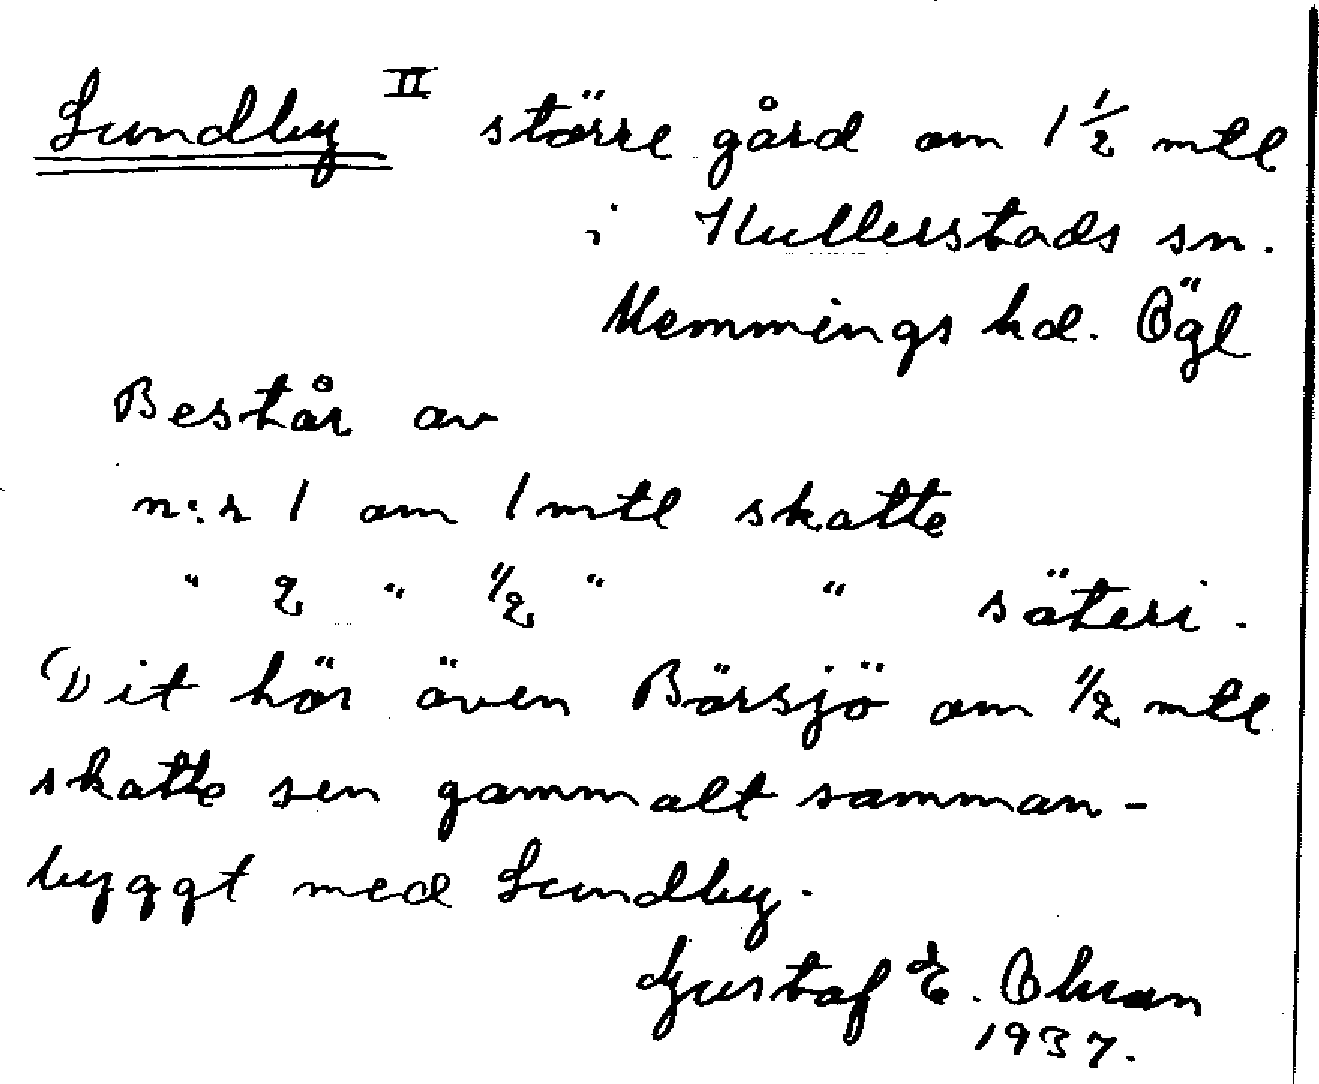 Lundby II större gård om 1 1/2 mtl
i Kullerstads sn.
Memmings hd. Ögl
Består av
n:r 1 om 1 mtl skatte
" 2 " 1/2 " " säteri.
Dit hör även Börsjö om 1/2 mtl
skatte sen gammalt samman-
byggt med Lundby.
Gustaf E.
1937.